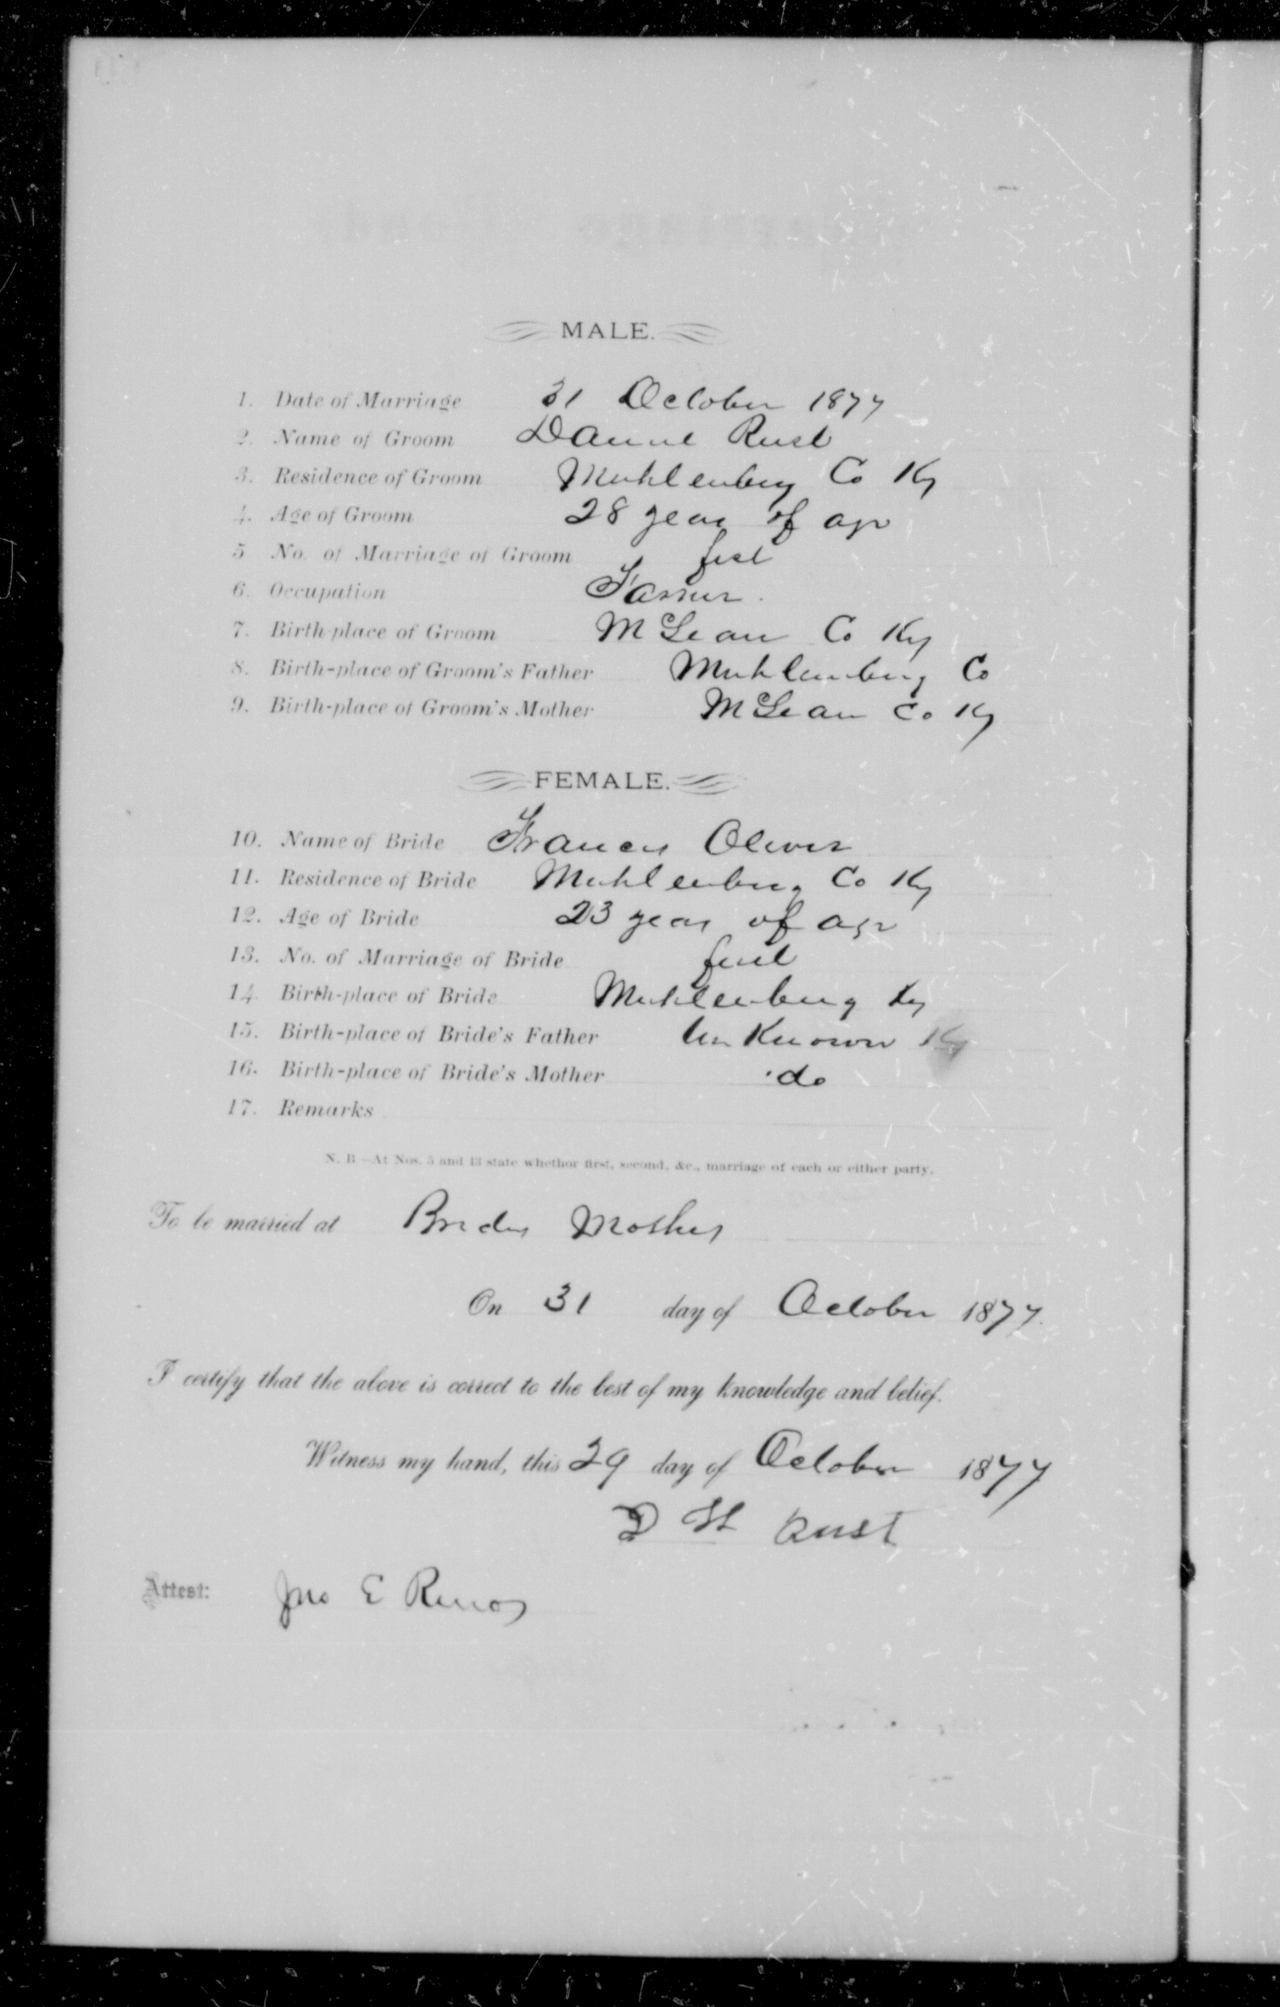 MALE.
1. Date of Marriage 31 October 1877
2. Name of Groom Daniel Rust
3. Residence of Groom Muhlenberg Co Ky
4. Age of Groom 28 years of age
5 No. of Marriage of Groom first
6. Occupation Farmer.
7. Birth-place of Groom McLean Co Ky
8. Birth-place of Groom's Father Muhlenberg Co
9. Birth-place of Groom's Mother McLean Co Ky
FEMALE.
10. Name of Bride Frances Oliver
11. Residence of Bride Muhlenberg Co Ky
12. Age of Bride 23 years of age
13. No. of Marriage of Bride first
14 Birth-place of Bride Muhlenberg Ky
15. Birth-place of Bride's Father Unknown Ky
16. Birth-place of Bride's Mother do
17. Remarks
N. B—At Nos. 5 and 13 state whether first, second, &c., marriage of each or either party.
To be married at Brides Mothers
On 31 day of October 1877.
I certify that the above is correct to the best of my knowledge and belief.
Witness my hand, this 29 day of October 1877
D H Rust
Attest: Jno E Reno